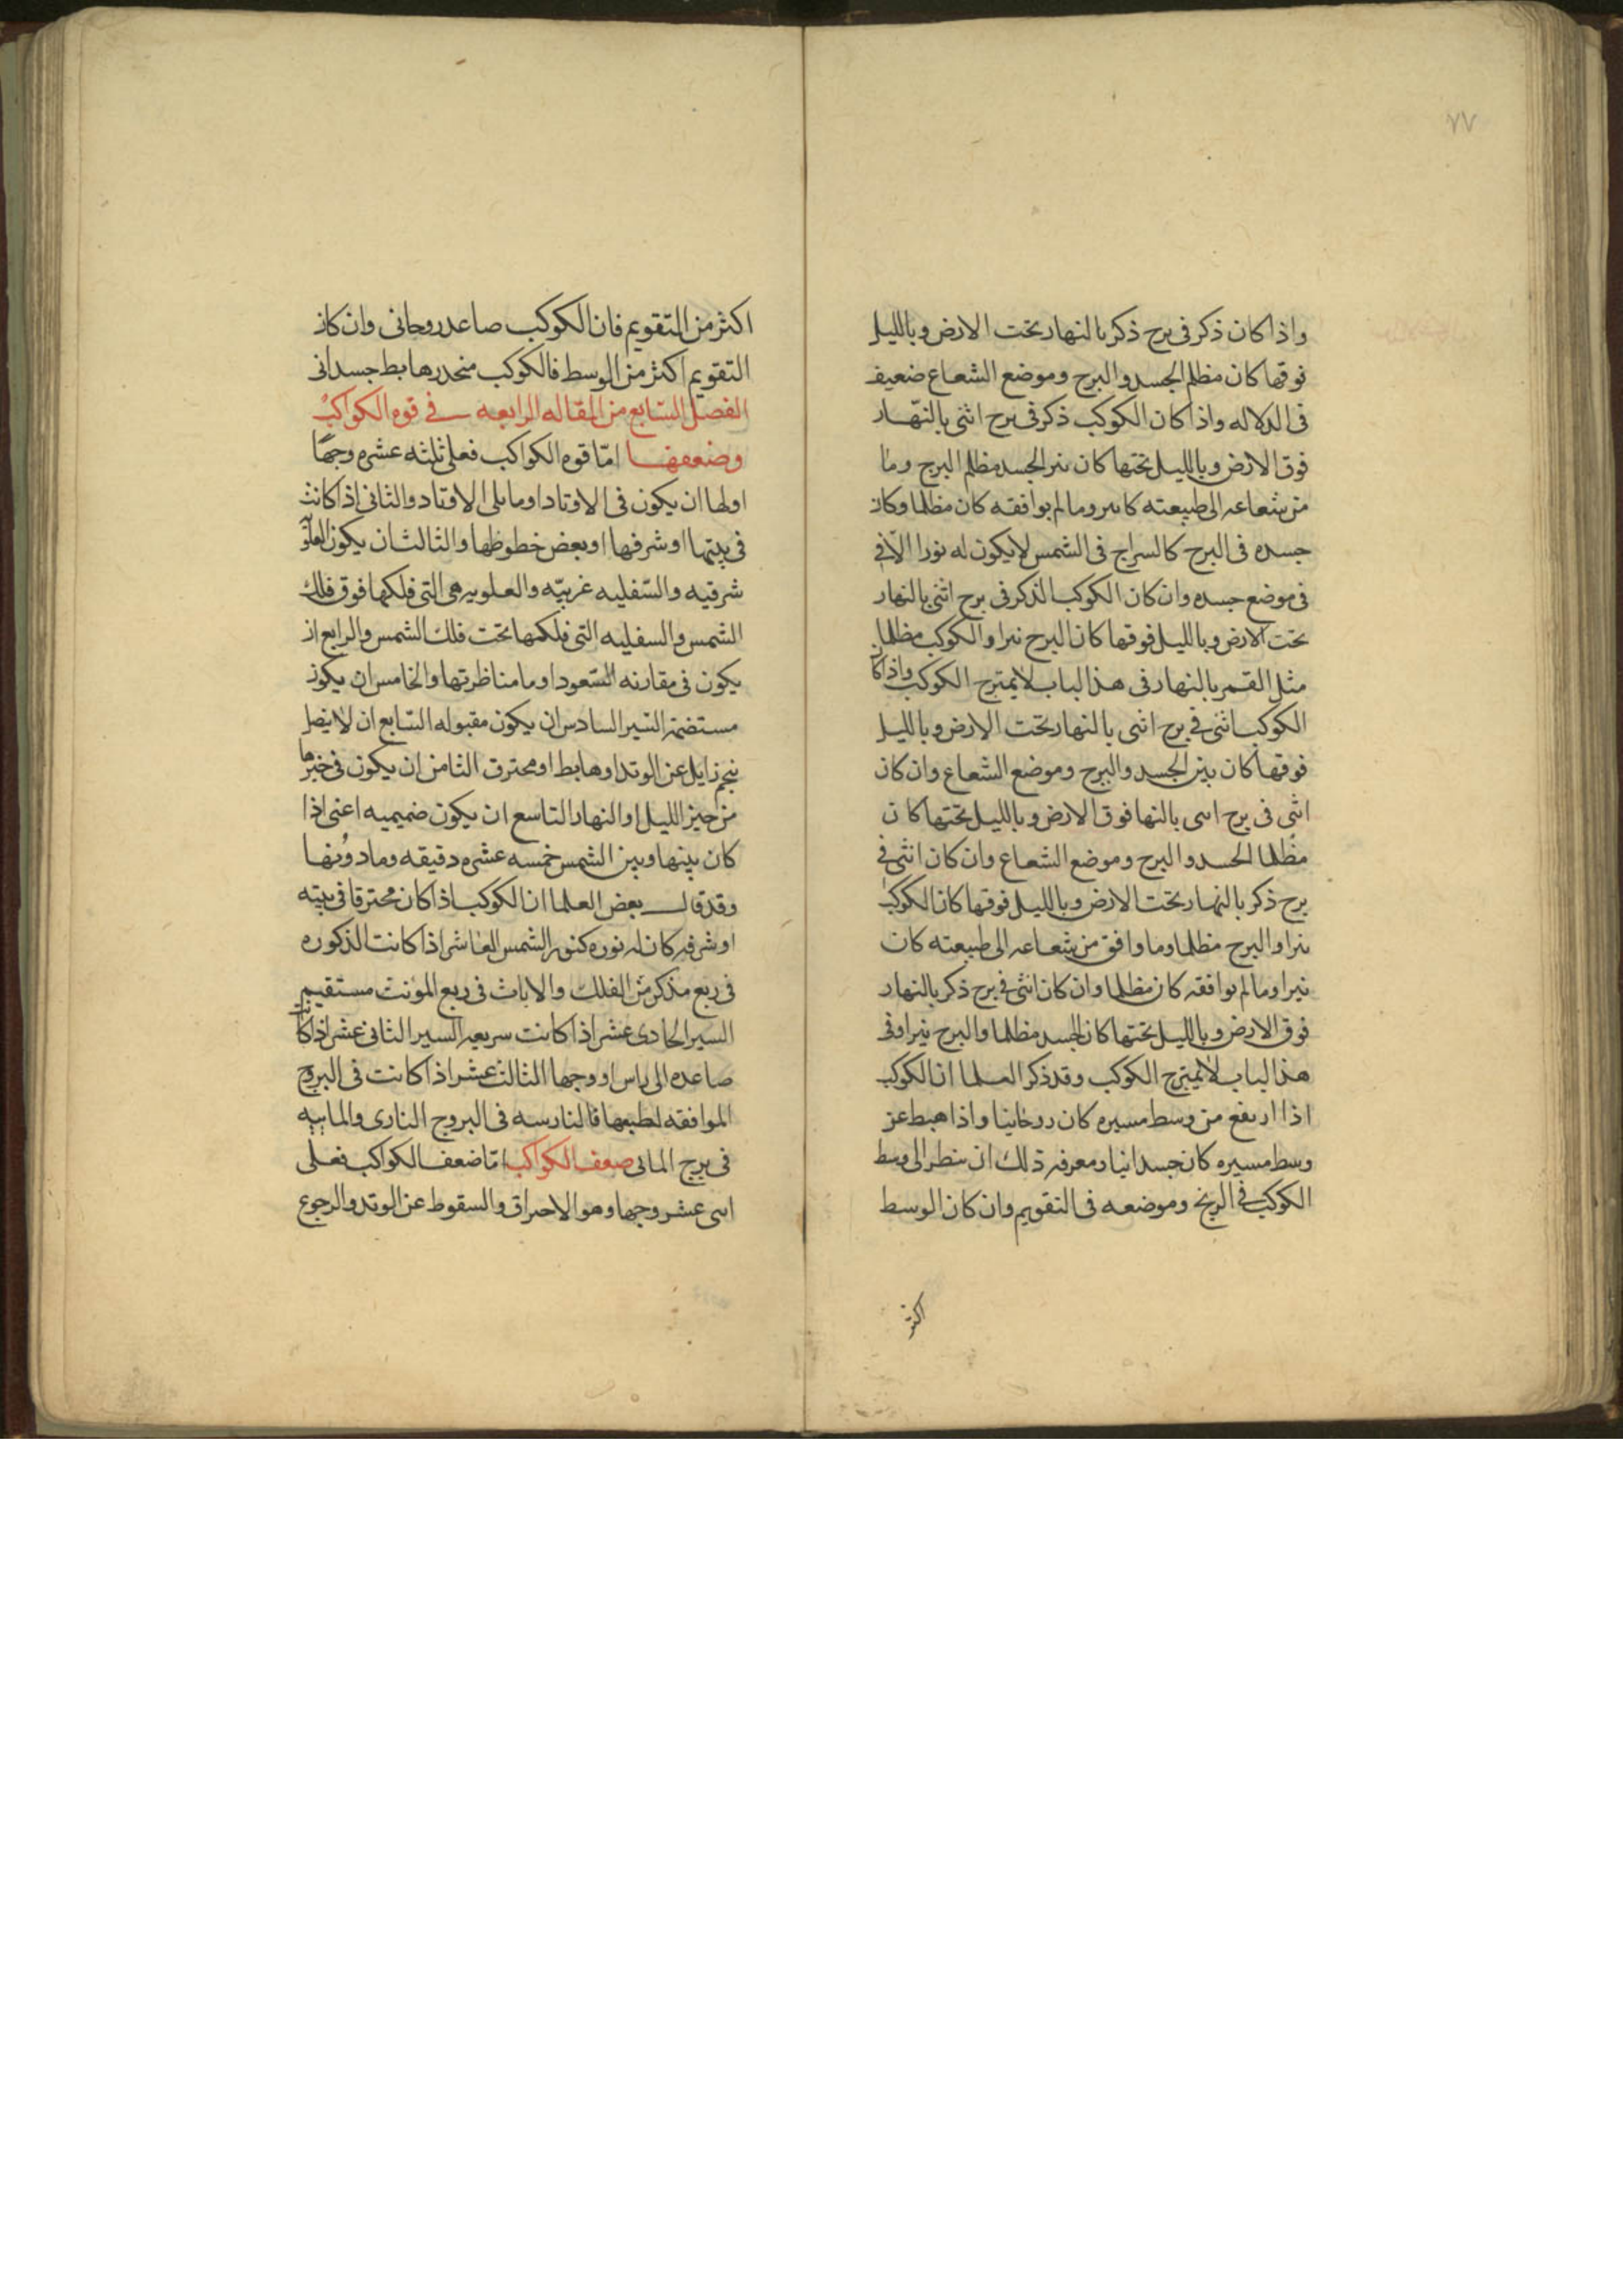 ٧٧
واذا كان ذكر فى برج ذكر بالنهار تحت الارض وبالليل
فوقها كان مظلم الجسد والبرج وموضع الشعاع ضعيف
فى الدلاله واذا كان الكوكب ذكر فى برج انثى بالنهار
فوق الارض وبالليل تحتها كان نير الجسد مظلم البرج وما
من شعاعه الى طبيعته كا نير وما لم يوافقه كان مظلما وكان
جسده فى البرج كالسراج فى الشمس لا يكون له نورا الا فى
فى موضع جسده وان كان الكوكب الذكر فى برج انثى بالنهار
تحت الارض وبالليل فوقها كان البرج نيرا والكوكب مظلما
مثل القمر بالنهار فى هذا الباب لا يمتزج الكوكب واذا كا
الكوكب انثى فى برج انثى بالنهار تحت الارض وبالليل
فوقها كان بين الجسد والبرج وموضع الشعاع وان كان
انثى فى برج اسى بالنها فوق الارض وبالليل تحتها كان
مظلما الجسد والبرج وموضع الشعاع وان كان انثى فى
برج ذكر بالنهار تحت الارض وبالليل فوقها كان الكوكب
نيرا والبرج مظلما وما وافق من شعاعه الى طبيعته كان
نيرا وما لم يوافقه كان مظلما وان كان انثى فى برج ذكر بالنهار
فوق الارض وبالليل تحتها كان الجسد مظلما والبرج نيرا وفى
هذا الباب لا يمتزج الكوكب وقد ذكر العلما ان الكوكب
اذا ارتفع من وسط مسيره كان روحانيا واذا هبط عن
وسط مسيره كان جسدانيا ومعرفه ذلك ان ينظر الى وسط
الكوكب فى الزيج وموضعه فى التقويم وان كان الوسط
اكثر
اكثر من التقويم فان الكوكب صاعد روحانى وان كان
التقويم اكثر من الوسط فالكوكب منحدر هابط جسدانى
الفصل السابع من المقاله الرابعه فى قوه الكواكب
وضعفها امّا قوه الكواكب فعلى ثلثه عشره وجهًا
اولها ان يكون فى الاوتاد او ما يلى الاوتاد والثانى اذا كانت
فى بيتها او شرفها او بعض حظوظها والثالث ان يكون العلو
شرقيه والسّفليه غربيّه والعلويه هى التى فلكها فوق فلك
الشمس والسفليه التى فلكها تحت فلك الشمس والرابع ان
يكون فى مقارنه السّعود او ما مناظرتها والخامس ان يكون
النير السادس ان يكون مقبوله السّابع ان لا يصل
بنجم زايل عن الوتد او هابط او محترق الثامن ان يكون فى خيرها
من حيز الليل او النهار التاسع ان يكون صميميه اعنى اذا
كان بينها وبين الشمس خمسه عشره دقيقه وما دونها
وقد قال بعض العلما ان الكوكب اذا كان محترقا فى بيته
او شرفه كان له نوره كنور الشمس العاشر اذا كانت الذكوره
فى ربع مذكر من الفلك والاناث فى ربع المونت مستقيم
السير الحادى عشر اذا كانت سريعه السير الثانى عشر اذا كانت
صاعده الى راس اووجها الثالث عشر اذا كانت فى البروج
الموافقه لطبعها فالناريه فى البروج النارى والمائيه
فى برج المائى ضعف الكواكب امّا ضعف الكواكب فعلى
اسى عشر وجها وهو الاحراق والسقوط عن الوتد والرجوع